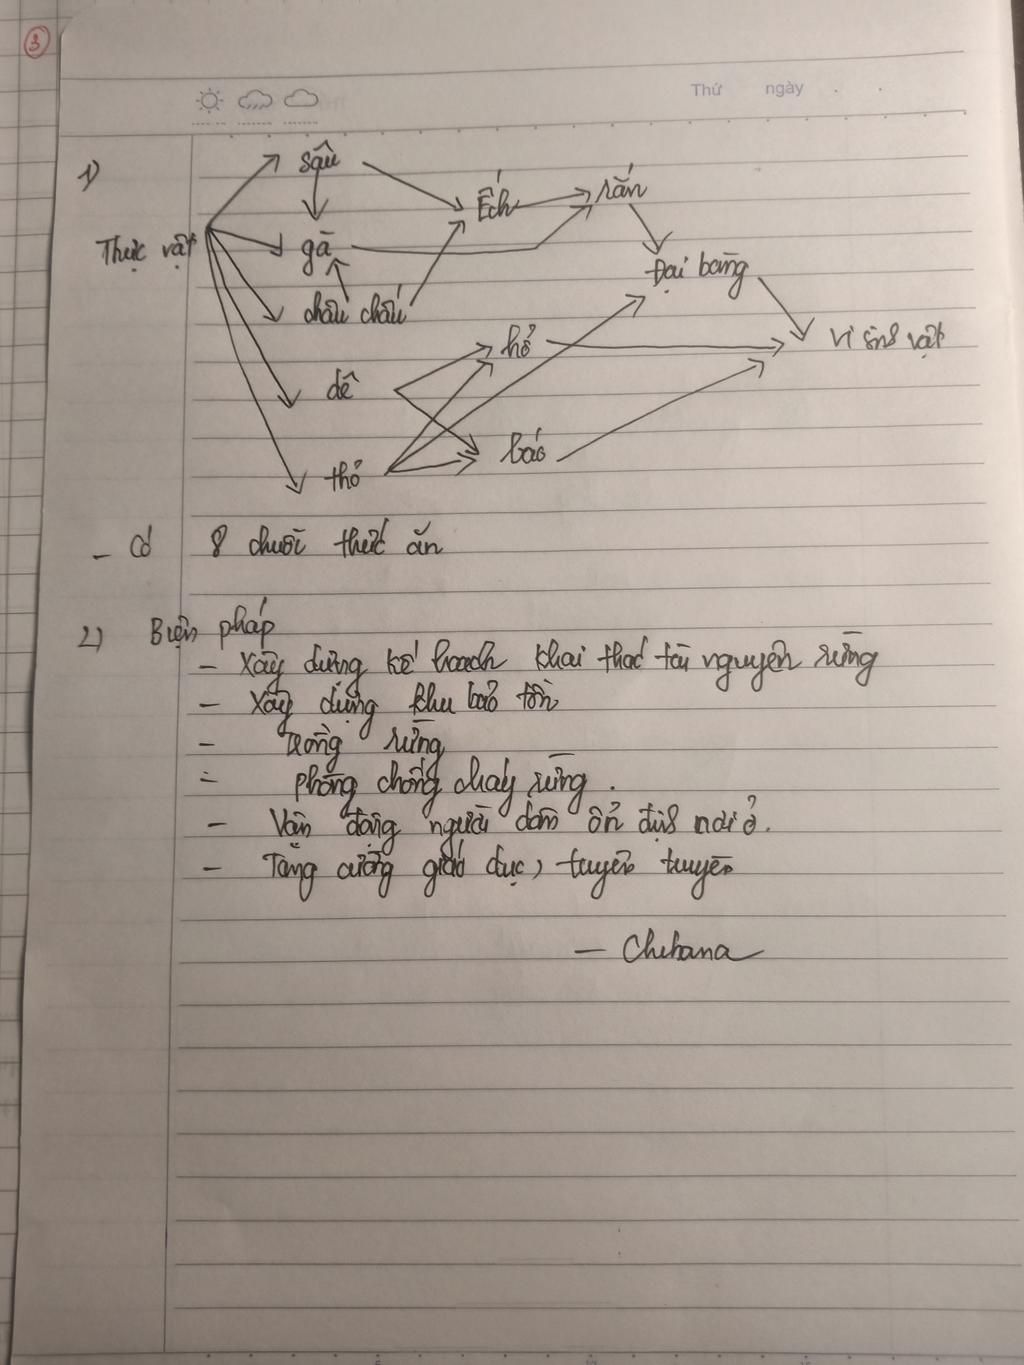 3
Thứ ngày
1)
sâu
Ếch rắn
Thực vật gà
Đại bàng
châu chấu
hổ vi sinh vật
dê
báo
thỏ
- Có 8 chuỗi thức ăn
2) Biện pháp
- Xây dựng kế hoạch khai thác tài nguyên rừng
- Xây dựng khu bảo tồn
- Trồng rừng
- phòng chống cháy rừng.
- Vận động người dân ổn định nơi ở.
- Tăng cường giáo dục, tuyên truyền
- Chihana